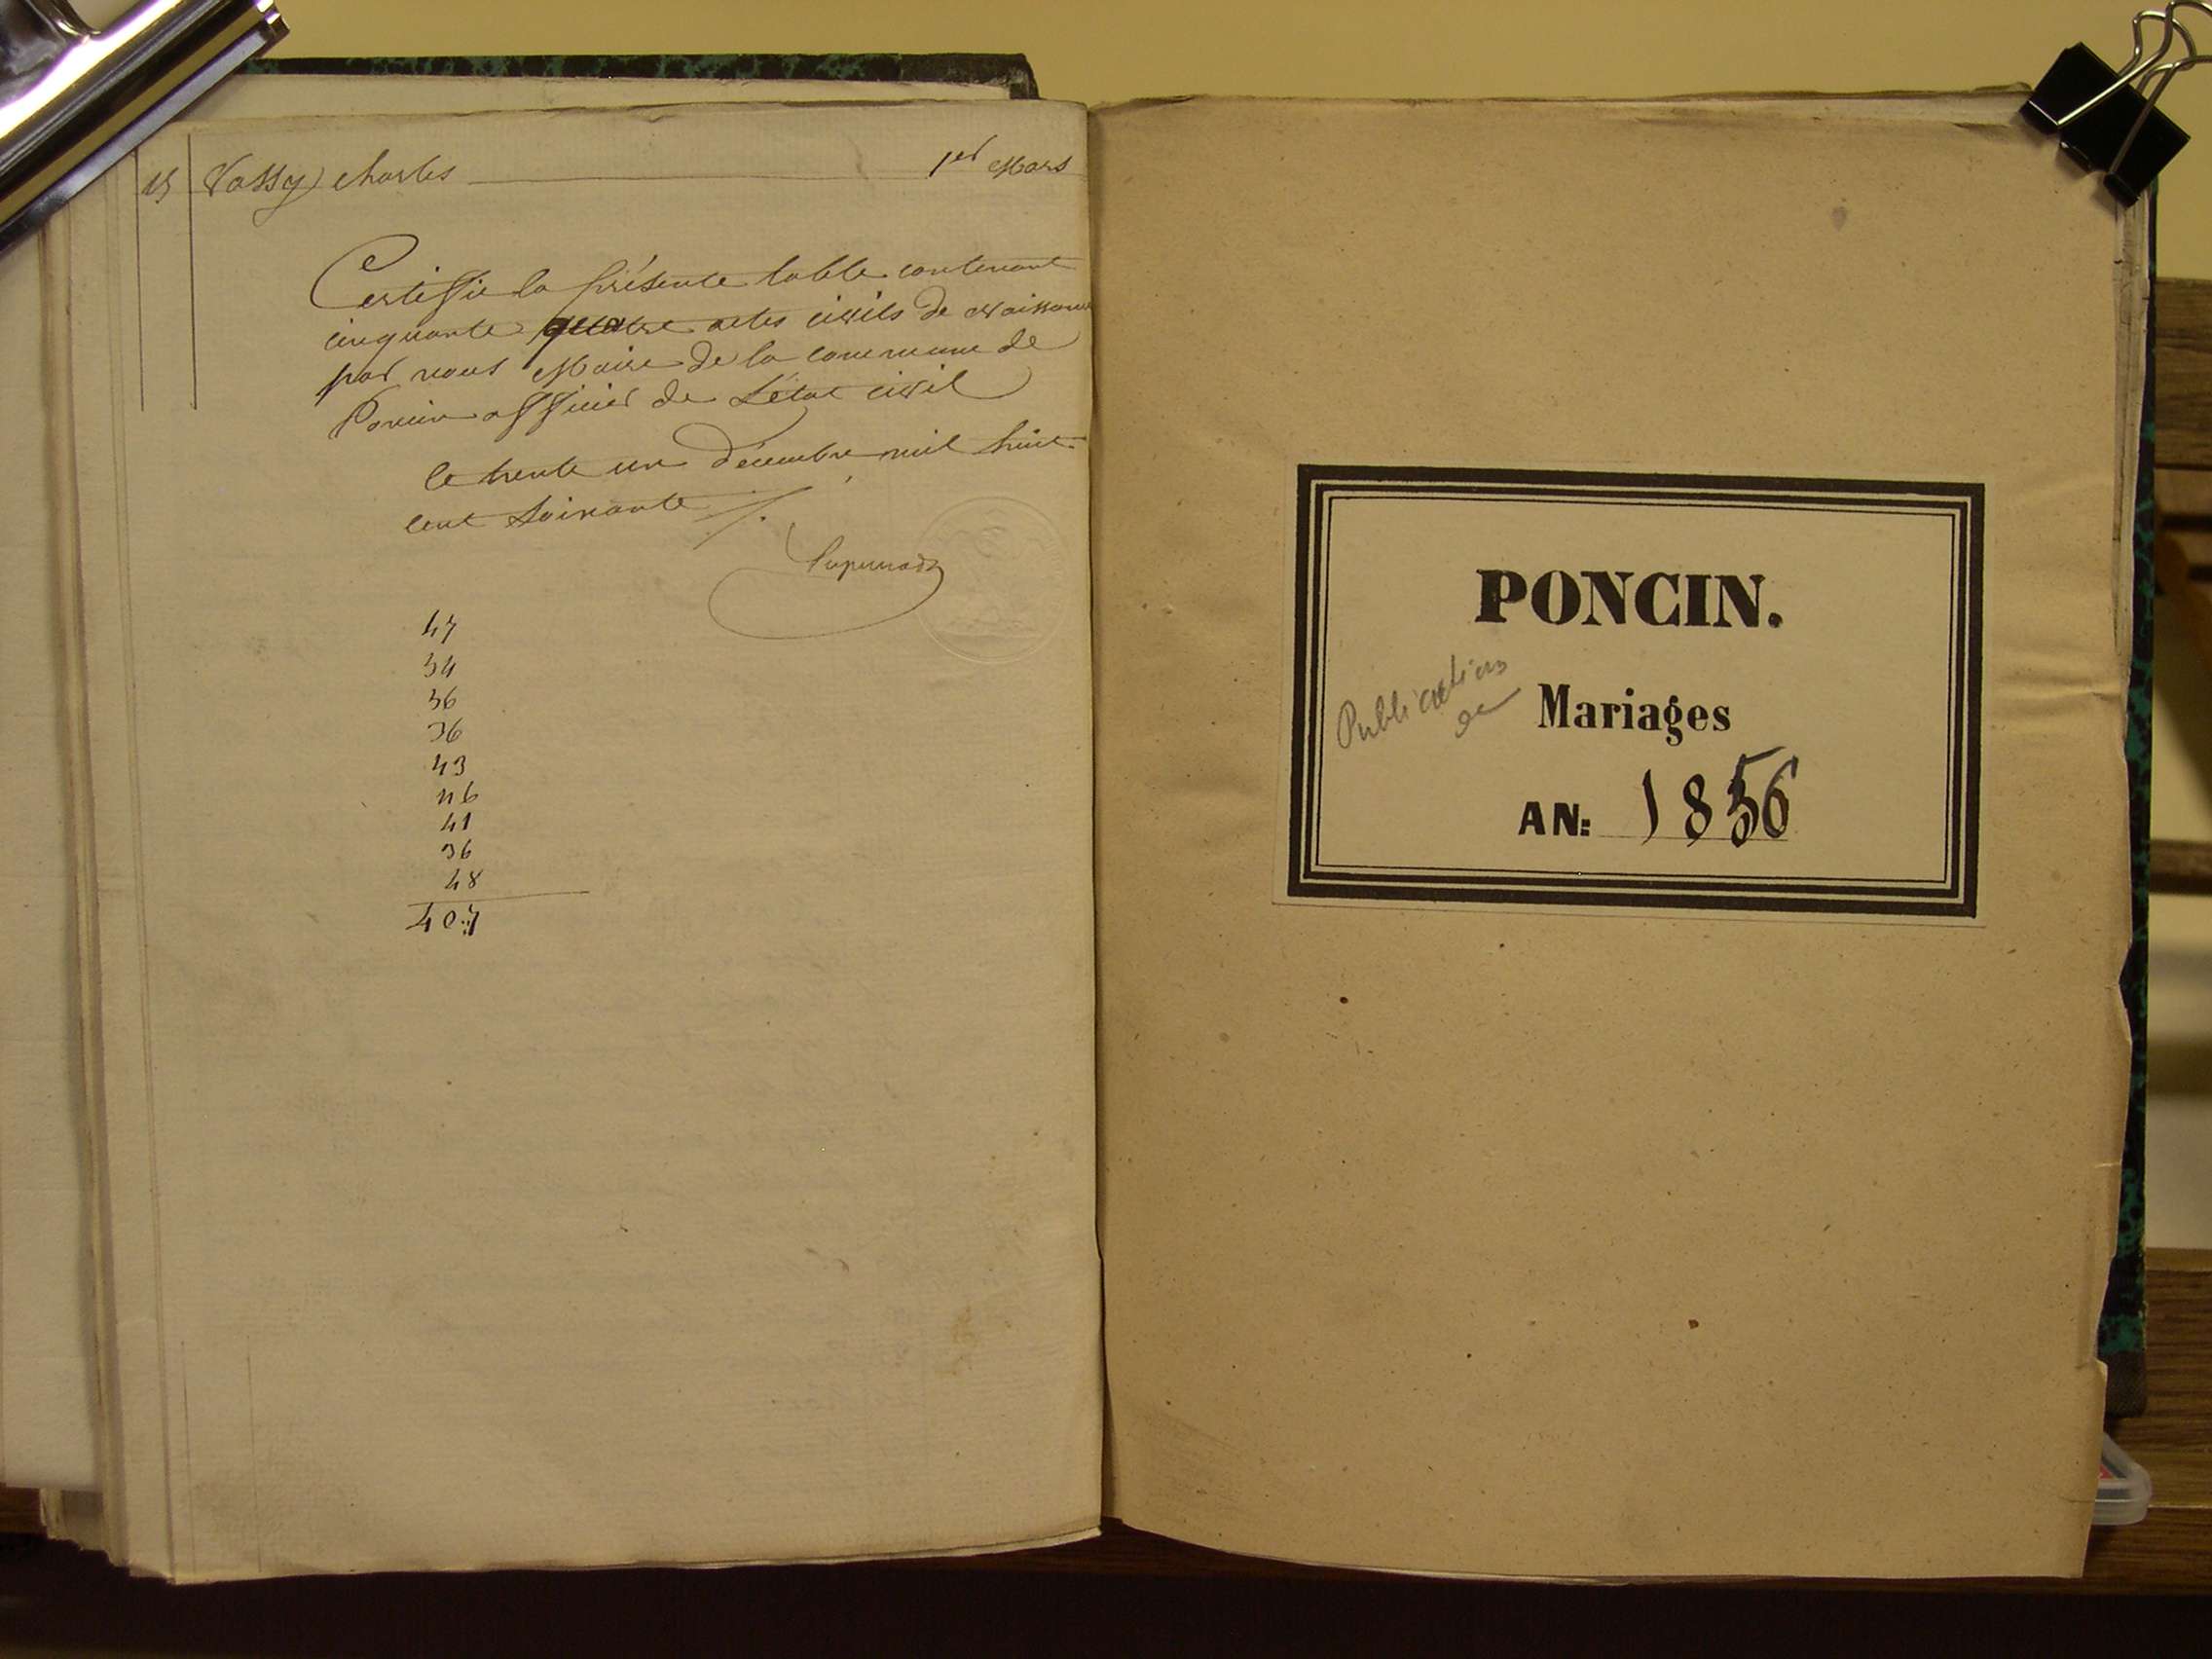 15 Vassy Charles 1er Mars
Certiffie la présente table contenant
cinquante quatre actes civils de Naissance
par nous Maire de la commune de
Poncin officier de L'état civil
le trente un décembre mil huit
cent soixante
47
54
56
36
43
46
41
36
48
407
PONCIN.
Publications
de
Mariages
AN: 1856